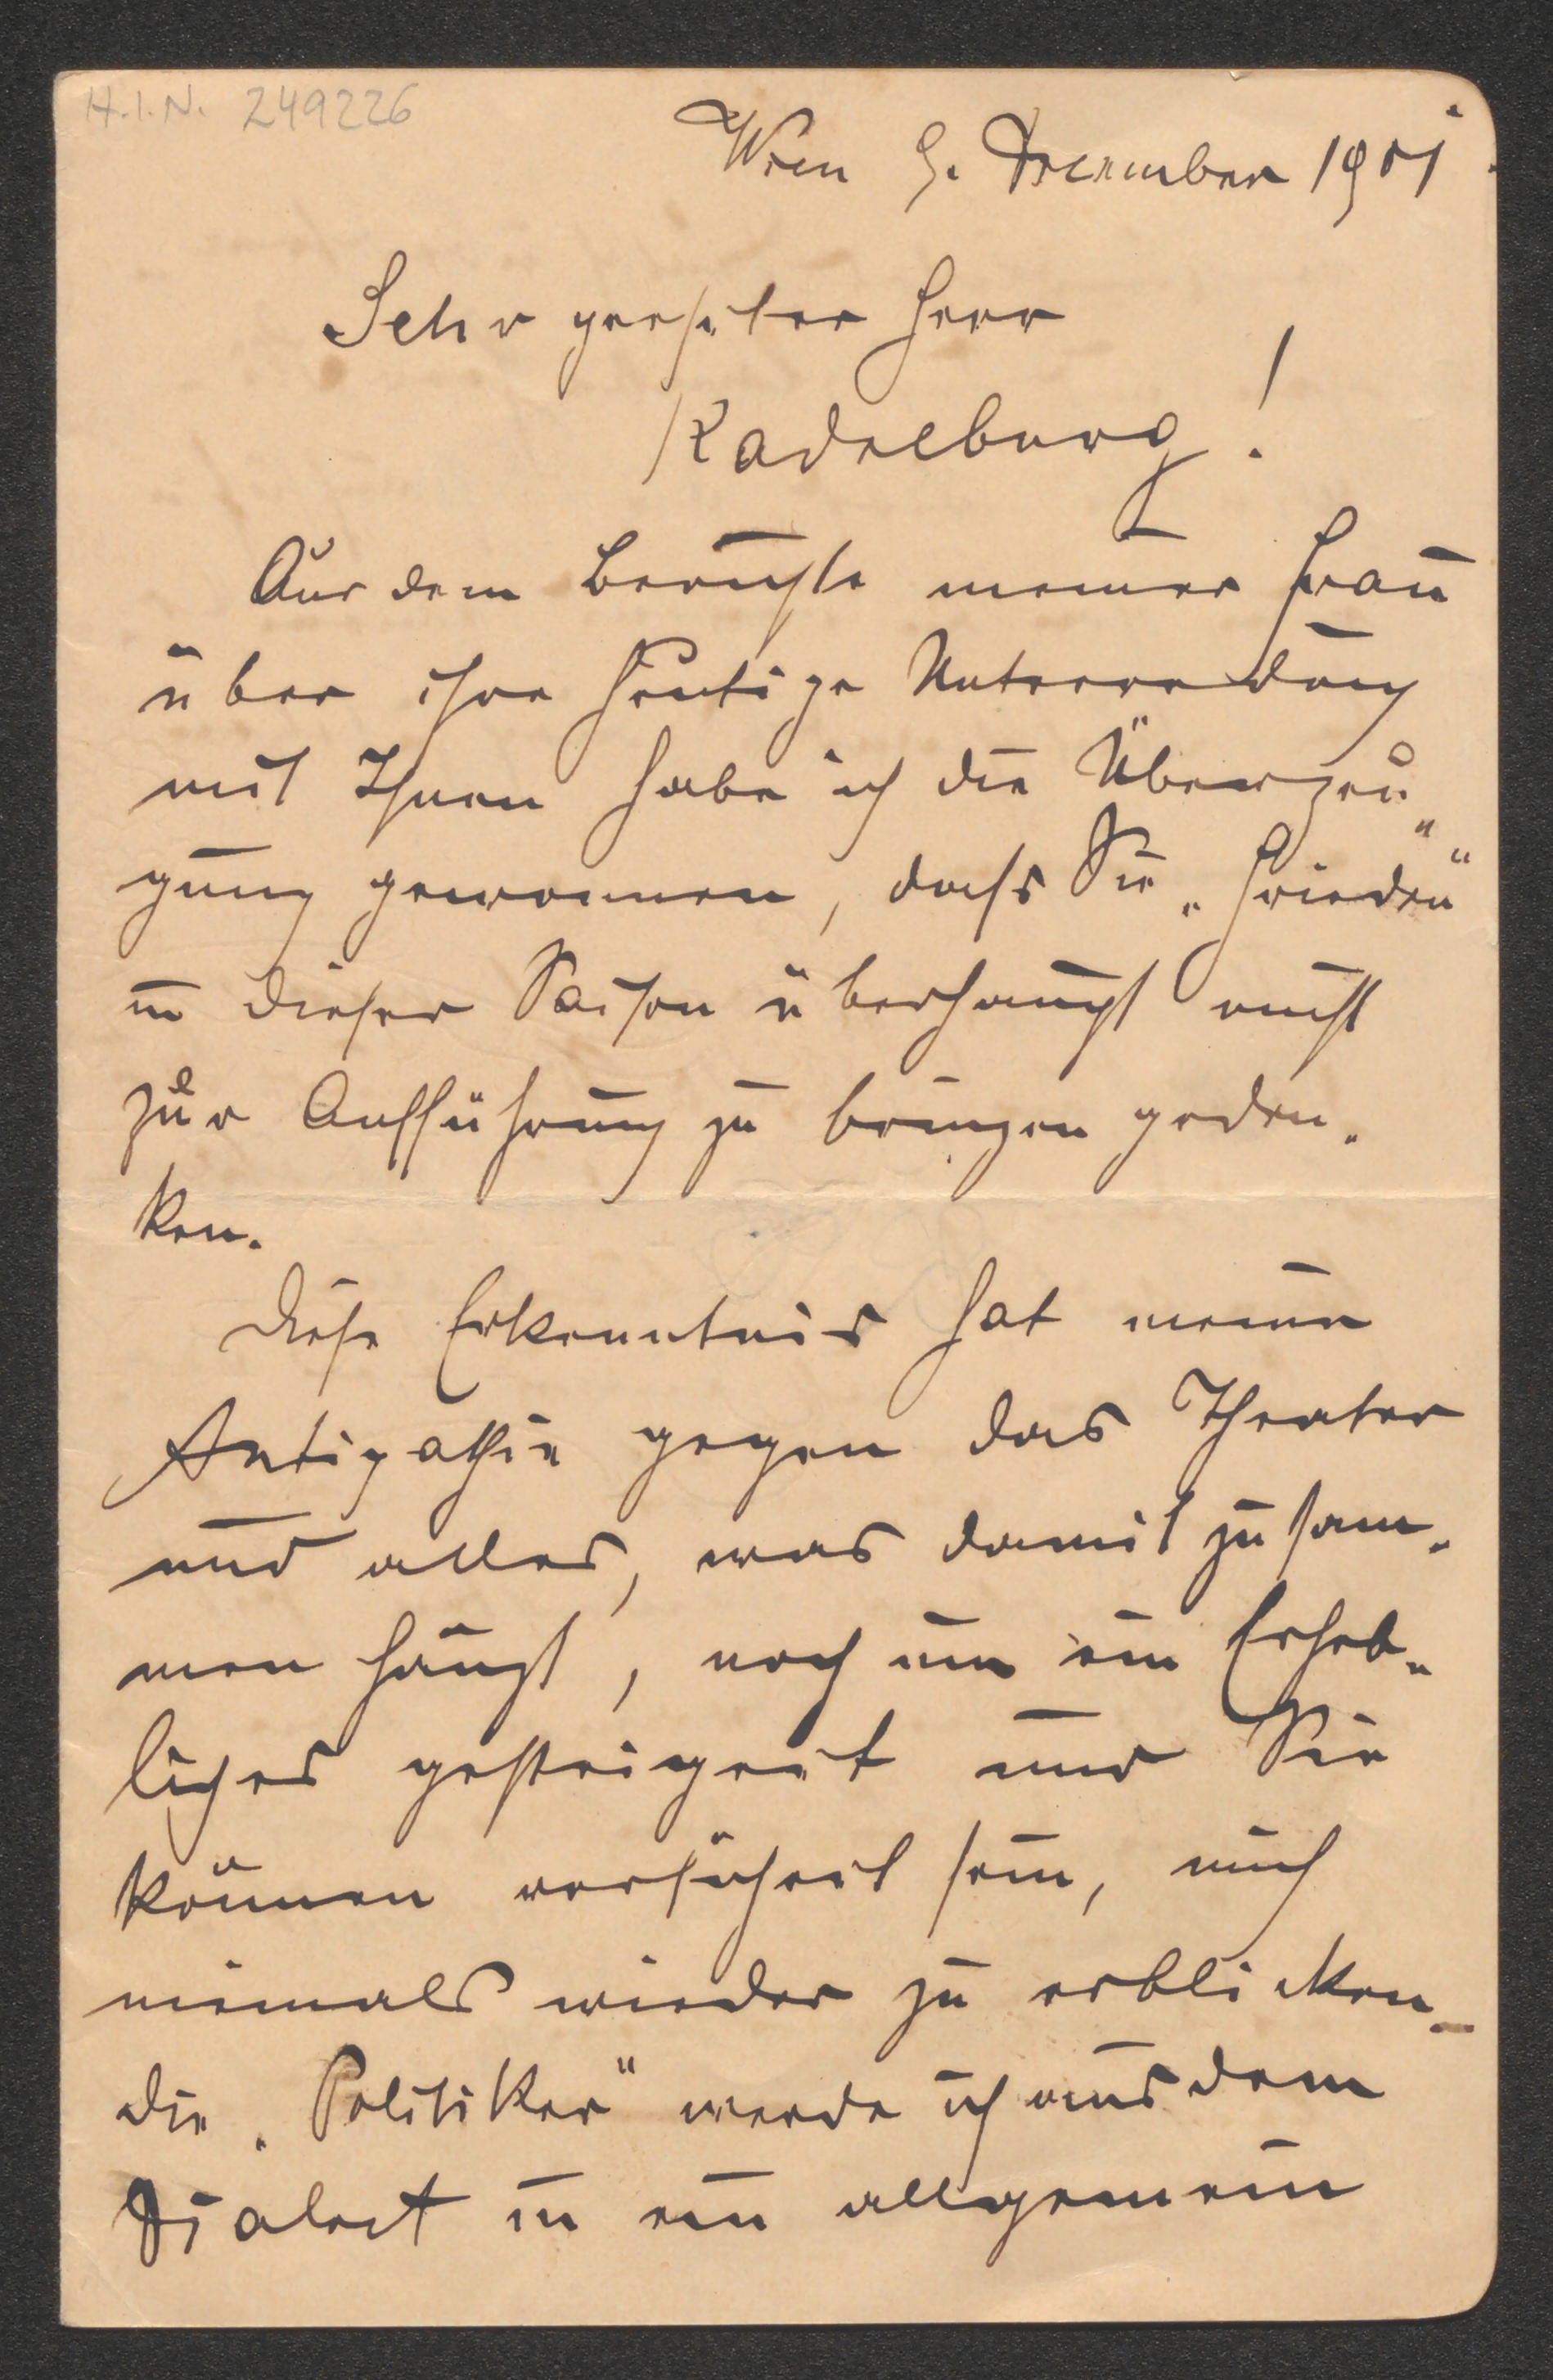 H.I.N. 249226
Wien 9. Dezember 1901.
Sehr geehrter Herr
Kadelburg!
Aus dem Berichte meiner Frau
über ihre heutige Unterredung
mit Ihnen habe ich die Überzeu„
gung gewonnen, dass Sie „Frieden“
in dieser Saison überhaupt nicht
zur Aufführung zu bringen geden-
ken.
Diese Erkenntnis hat meine
Antipathie gegen das Theater
und alles, was damit zusam-
men hängt, noch um ein Erheb-
liches gesteigert und Sie
können versichert sein, mich
niemals wieder zu erblicken_
die „Politiker“ werde ich aus dem
Dialect in ein allgemein